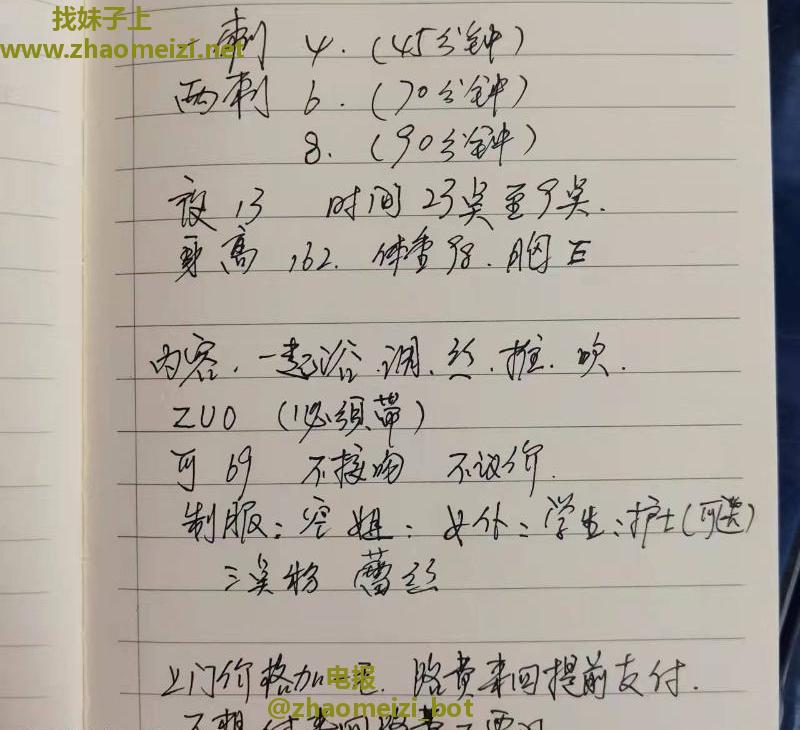 找妹子上
www.zhaomeizi.net
一刺 4. (45分钟)
两刺 6. (70分钟)
8. (90分钟)
夜13 时间23点至9点.
身高162. 体重98. 胸B
内容. 一起浴.调.丝.推.吹.
ZUO (必须带)
可69 不接吻 不议价.
制服: 空姐: 女仆: 学生: 护士(可选)
三点粉 蕾丝
上门价格加 路费来回提前支付.
电报
@zhaomeizi_bot
不想付来回路费